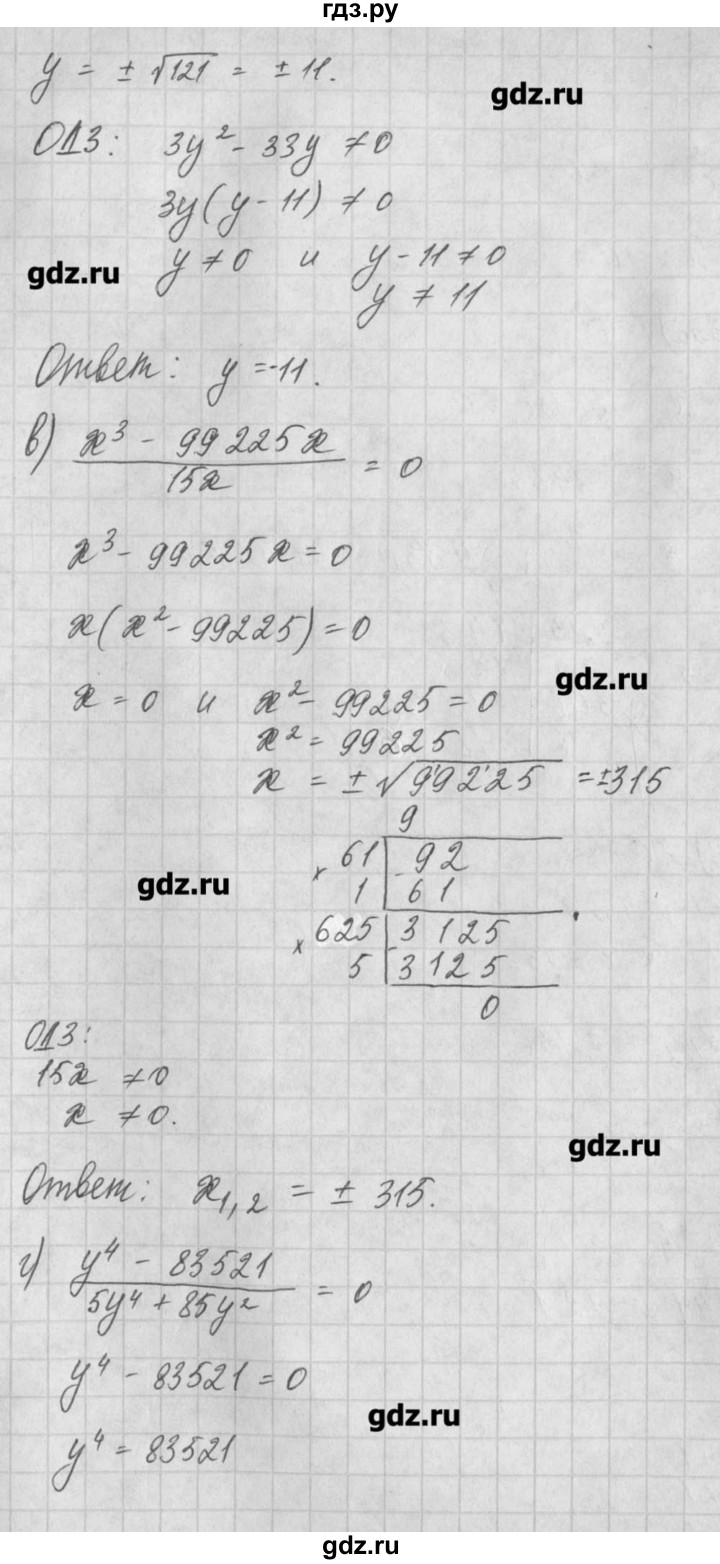 гдз.ру
y = ± √121 = ± 11.
gdz.ru
ОДЗ: 3y² - 33y ≠ 0
3y(y - 11) ≠ 0
gdz.ru
y ≠ 0 и y - 11 ≠ 0
y ≠ 11
Ответ: y = -11.
в) x³ - 99225x
15x
= 0
x³ - 99225x = 0
x(x² - 99225) = 0
gdz.ru
x = 0 и x² - 99225 = 0
x² = 99225
x = ± √9'92'25 = ± 315
9
x 61 | - 92
1 | 61
gdz.ru
x 625 | - 3125
5 | 3125
0
ОДЗ:
15x ≠ 0
x ≠ 0.
gdz.ru
Ответ: x₁,₂ = ± 315.
г) y⁴ - 83521
5y⁴ + 85y²
= 0
y⁴ - 83521 = 0
gdz.ru
y⁴ = 83521
gdz.ru